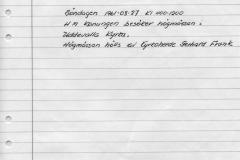 Söndagen 1961-08-27 Kl 1100-1200
H M Konungen besöker högmässan i
Uddevalla Kyrka.
Högmässan hålls av Kyrkoherde Gerhard Frank